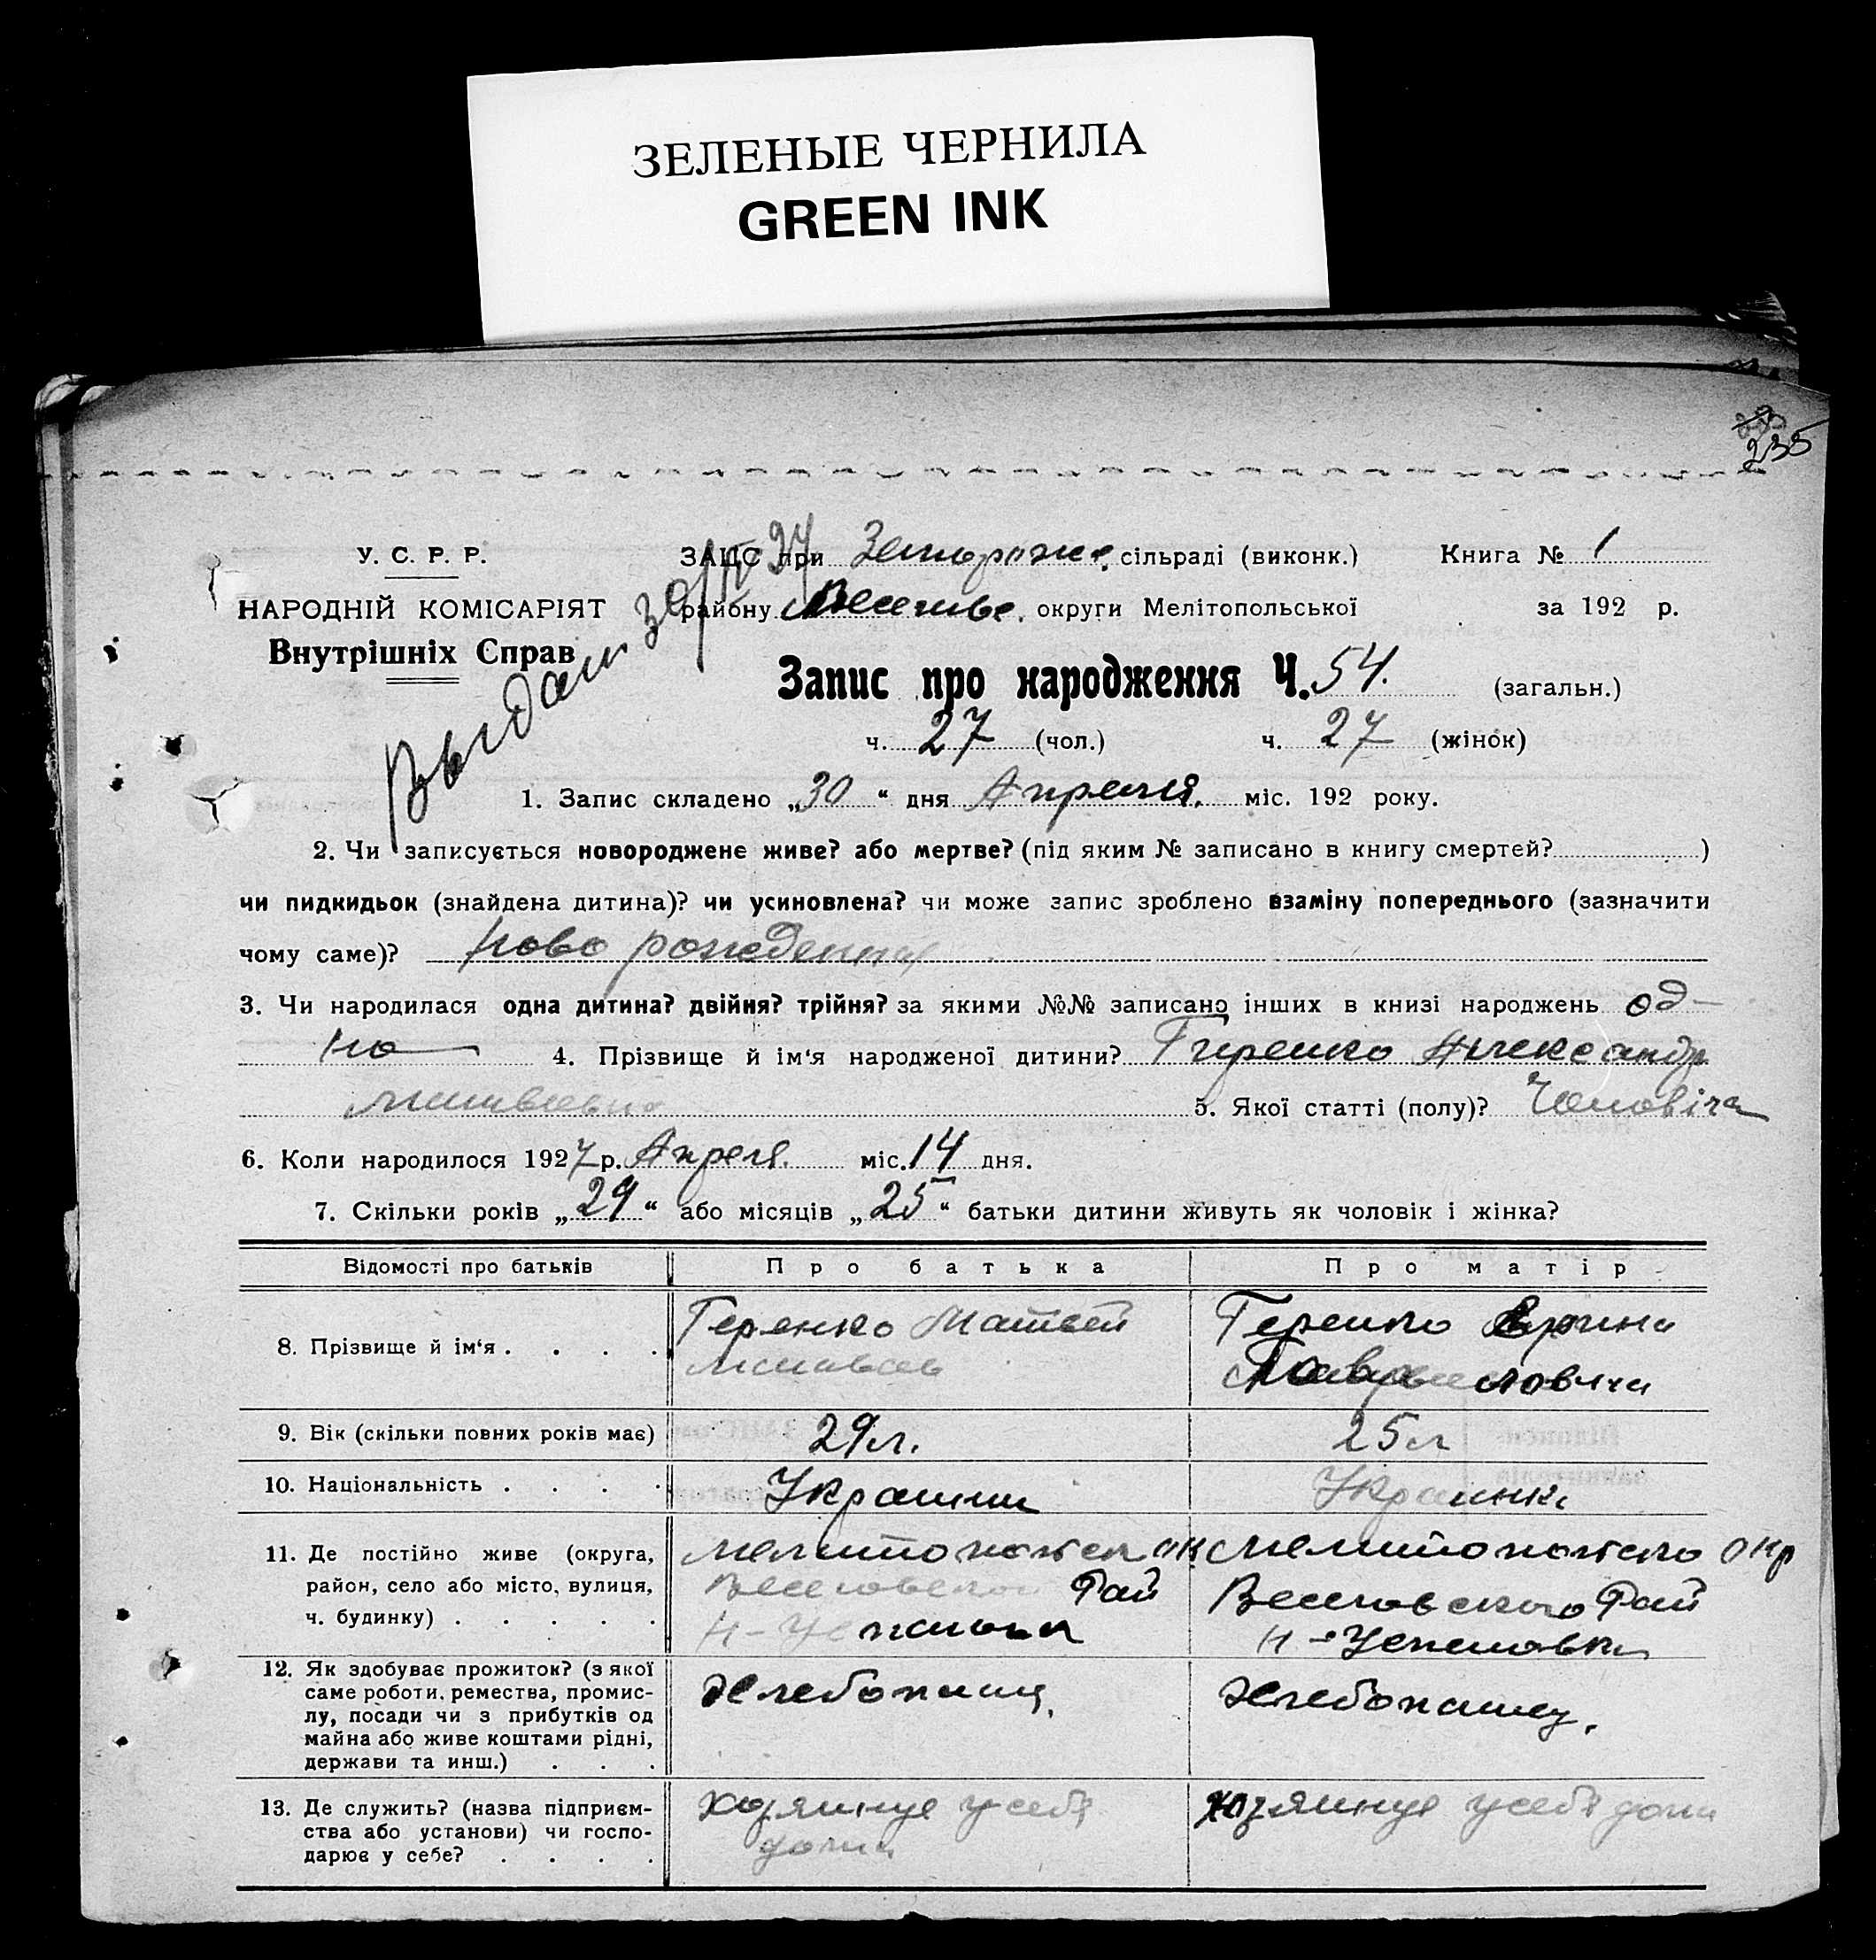 ЗЕЛЕНЫЕ ЧЕРНИЛА
GREEN INK
235
У. С. Р. Р.
НАРОДНІЙ КОМІСАРІЯТ
Внутрішніх Справ
ЗАЦС при сільраді (виконк.) Книга № 1
району округи Мелітопольської за 192 р.
Запис про народження Ч. 54. (загальн.)
ч. 27 (чол.) ч. 27 (жінок)
1. Запис складено „30“ дня Апреля. міс. 192 року.
2. Чи записується новороджене живе? або мертве? (під яким № записано в книгу смертей? )
чи пидкидьок (знайдена дитина)? чи усиновлена? чи може запис зроблено взаміну попереднього (зазначити
чому саме)? ново
3. Чи народилася одна дитина? двійня? трійня? за якими №№ записано інших в книзі народжень од-
но 4. Прізвище й ім'я народженої дитини? Гиренко Александр
5. Якої статті (полу)? Чоловіча
6. Коли народилося 1927 р. Апреля. міс. 14 дня.
7. Скільки років „29“ або місяців „25“ батьки дитини живуть як чоловік і жінка?
Відомості про батьків Про батька Про матір
8. Прізвище й ім'я . . . . Геренко Матвей Геренко
9. Вік (скільки повних років має) 29 л. 25 л
10. Національність . . . . Украинец Украинка
11. Де постійно живе (округа,
район, село або місто, вулиця,
ч. будинку) . . . . .
Рай
Веселовского Рай
Н-Успеновка
12. Як здобуває прожиток? (з якої
саме роботи, ремества, промис-
лу, посади чи з прибутків од
майна або живе коштами рідні,
держави та инш.) . . .
Хлебопашец. Хлебопашец.
13. Де служить? (назва підприєм-
ства або установи) чи госпо-
дарює у себе? . . . .
хозяинує у себя
дома
хозяинує у себя дома